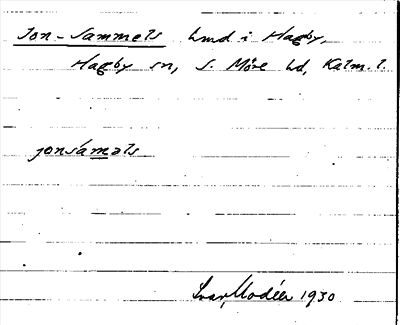 Jon-Sammels hmd i Hagby,
Hagby sn, S. Möre hd, Kalm. l.
jonsámals
Ivar Modéer 1930